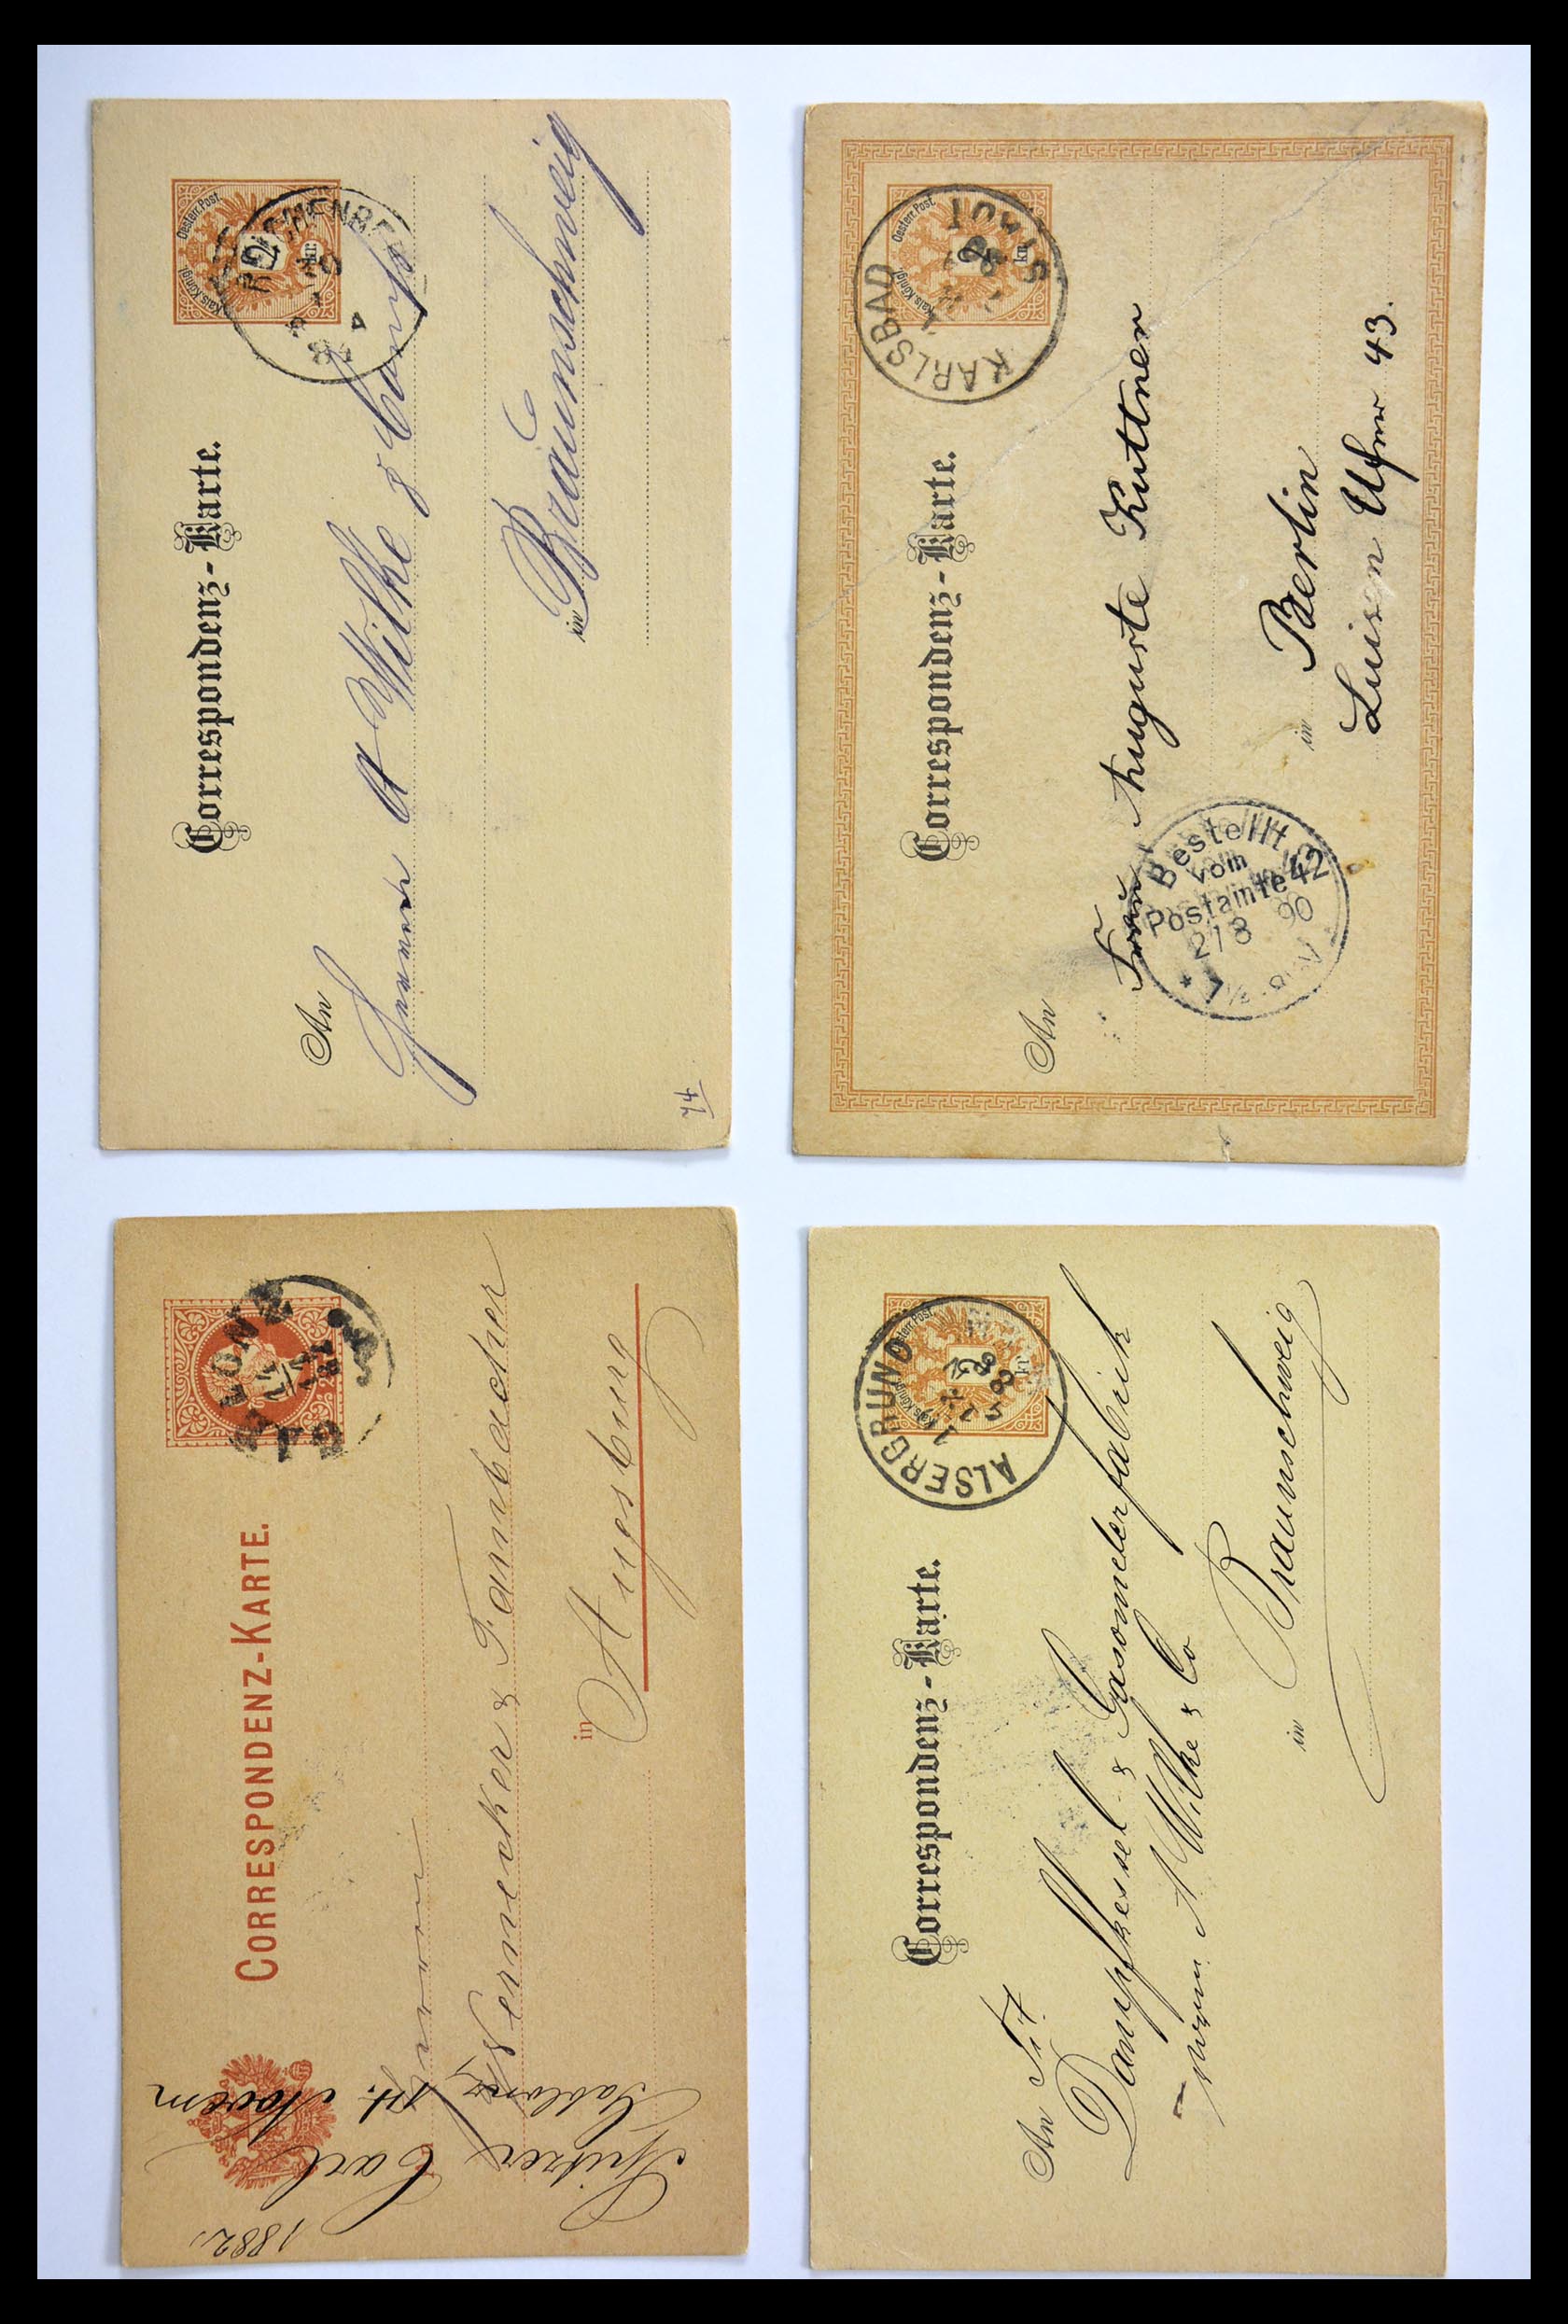 Correspondenz-Karte.
Kais. Königl. Oesterr. Post.
2 kr.
An
Herren A Wilke & Comp
in Braunschweig
74
Correspondenz-Karte.
Kais. Königl. Oesterr. Post.
2 kr.
KARLSBAD
STADT
An
Frau Auguste Kuttner
in Berlin
Luisen Ufer 43.
Bestellt
vom
Postamte 42
21 8 90
CORRESPONDENZ-KARTE.
GABLONZ
Herren
Wernecker & Farnbacher
in Augsburg
1882
Spitzer Carl
Gablonz, 14. Novem
Correspondenz-Karte.
Kais. Königl. Oesterr. Post.
2 kr.
ALSERGRUND
An Tit
Dampfkessel & Gasometerfabrik
vorm A Wilke & Co
in Braunschweig